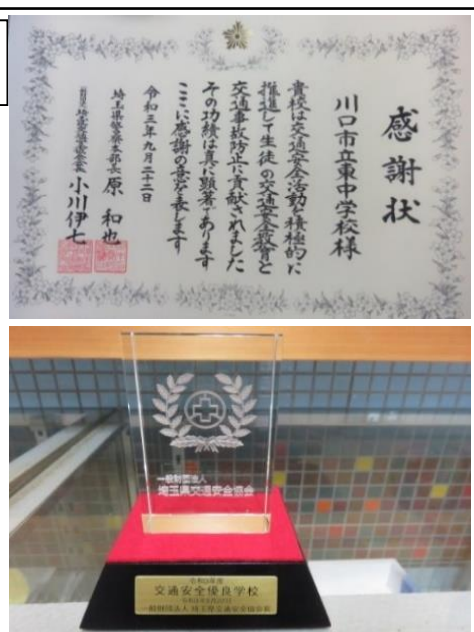 感謝状
川口市立東中学校様
貴校は交通安全活動を積極的に
推進して生徒の交通安全教育と
交通事故防止に貢献されました
その功績は真に顕著であります
ここに感謝の意を表します
令和三年九月二十二日
埼玉県警察本部長 原 和也
小川伊七
一般財団法人
埼玉県交通安全協会
交通安全優良学校
一般財団法人 埼玉県交通安全協会